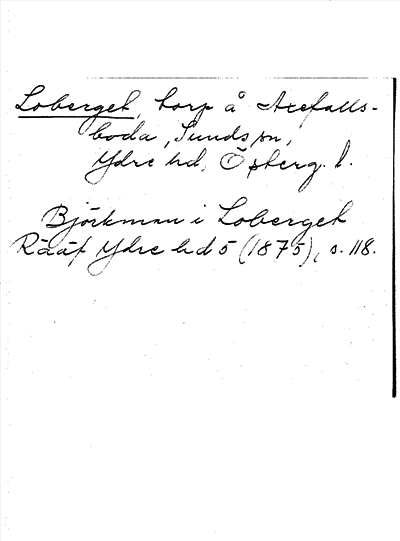 Loberget, torp å Axefalls-
boda, Sunds sn,
Ydre hd, Ö
Björkman i Loberget
Rääf Ydre hd 5 (1875), s. 118.